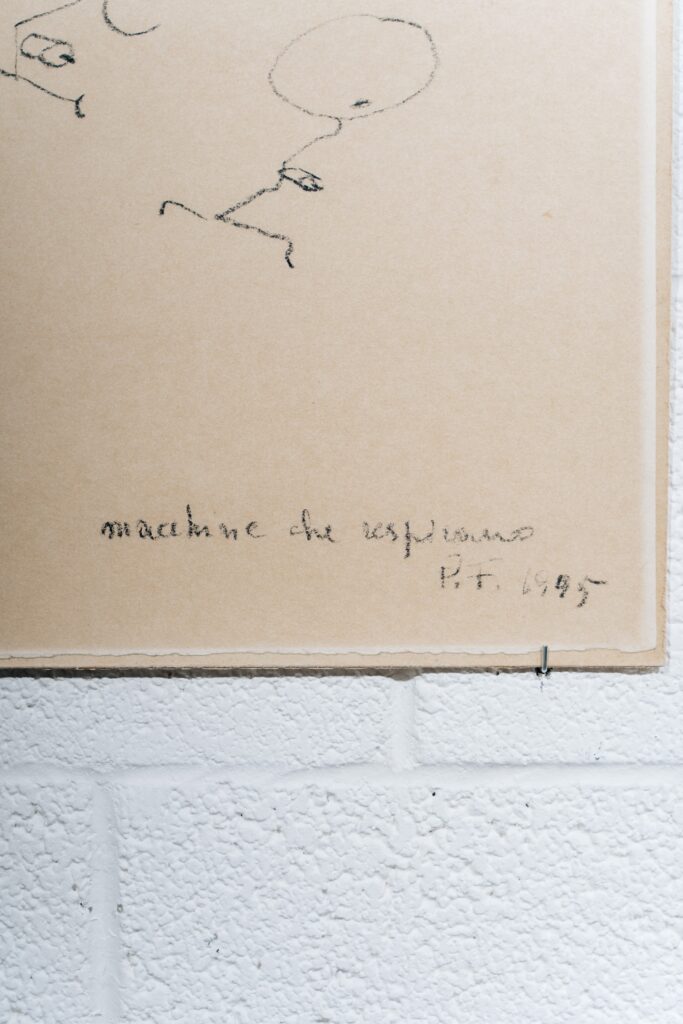 macchine che respirano
P.F. 1995